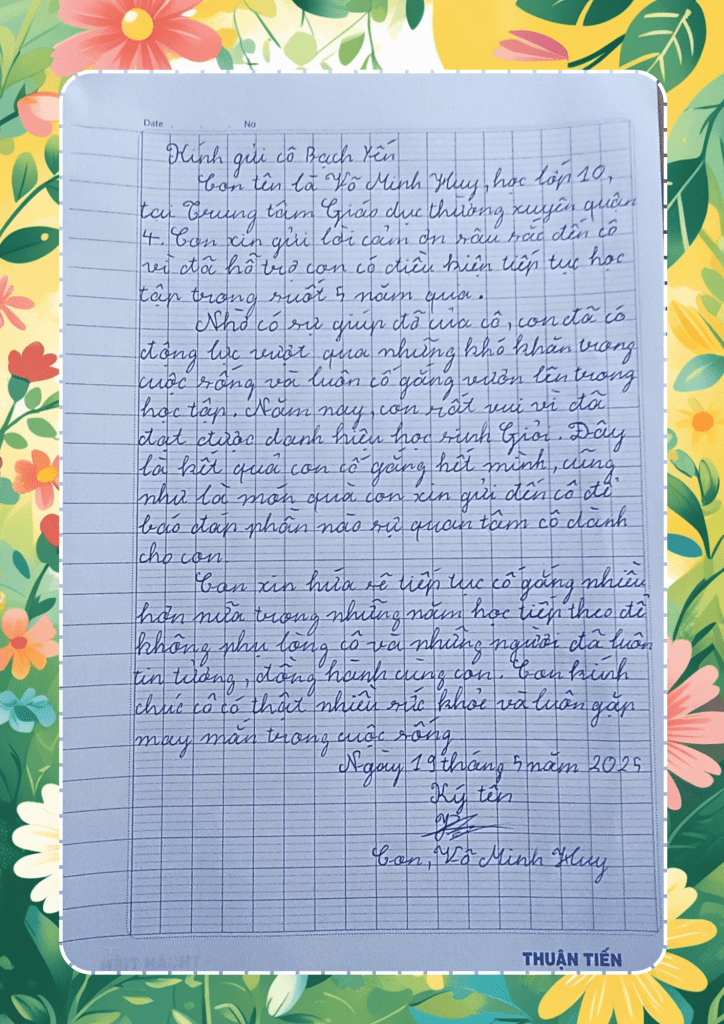 Date No
Kính gửi cô Bạch Yến
Con tên là Võ Minh Huy, học lớp 10,
tại Trung tâm Giáo dục thường xuyên quận
4. Con xin gửi lời cảm ơn sâu sắc đến cô
vì đã hỗ trợ con có điều kiện tiếp tục học
tập trong suốt 5 năm qua.
Nhờ có sự giúp đỡ của cô, con đã có
động lực vượt qua những khó khăn trong
cuộc sống và luôn cố gắng vươn lên trong
học tập. Năm nay, con rất vui vì đã
đạt được danh hiệu học sinh Giỏi. Đây
là kết quả con cố gắng hết mình, cũng
như là món quà con xin gửi đến cô để
báo đáp phần nào sự quan tâm cô dành
cho con.
Con xin hứa sẽ tiếp tục cố gắng nhiều
hơn nữa trong những năm học tiếp theo để
không phụ lòng cô và những người đã luôn
tin tưởng, đồng hành cùng con. Con kính
chúc cô có thật nhiều sức khỏe và luôn gặp
may mắn trong cuộc sống
Ngày 19 tháng 5 năm 2025
Ký tên
Con, Võ Minh Huy
THUẬN TIẾN